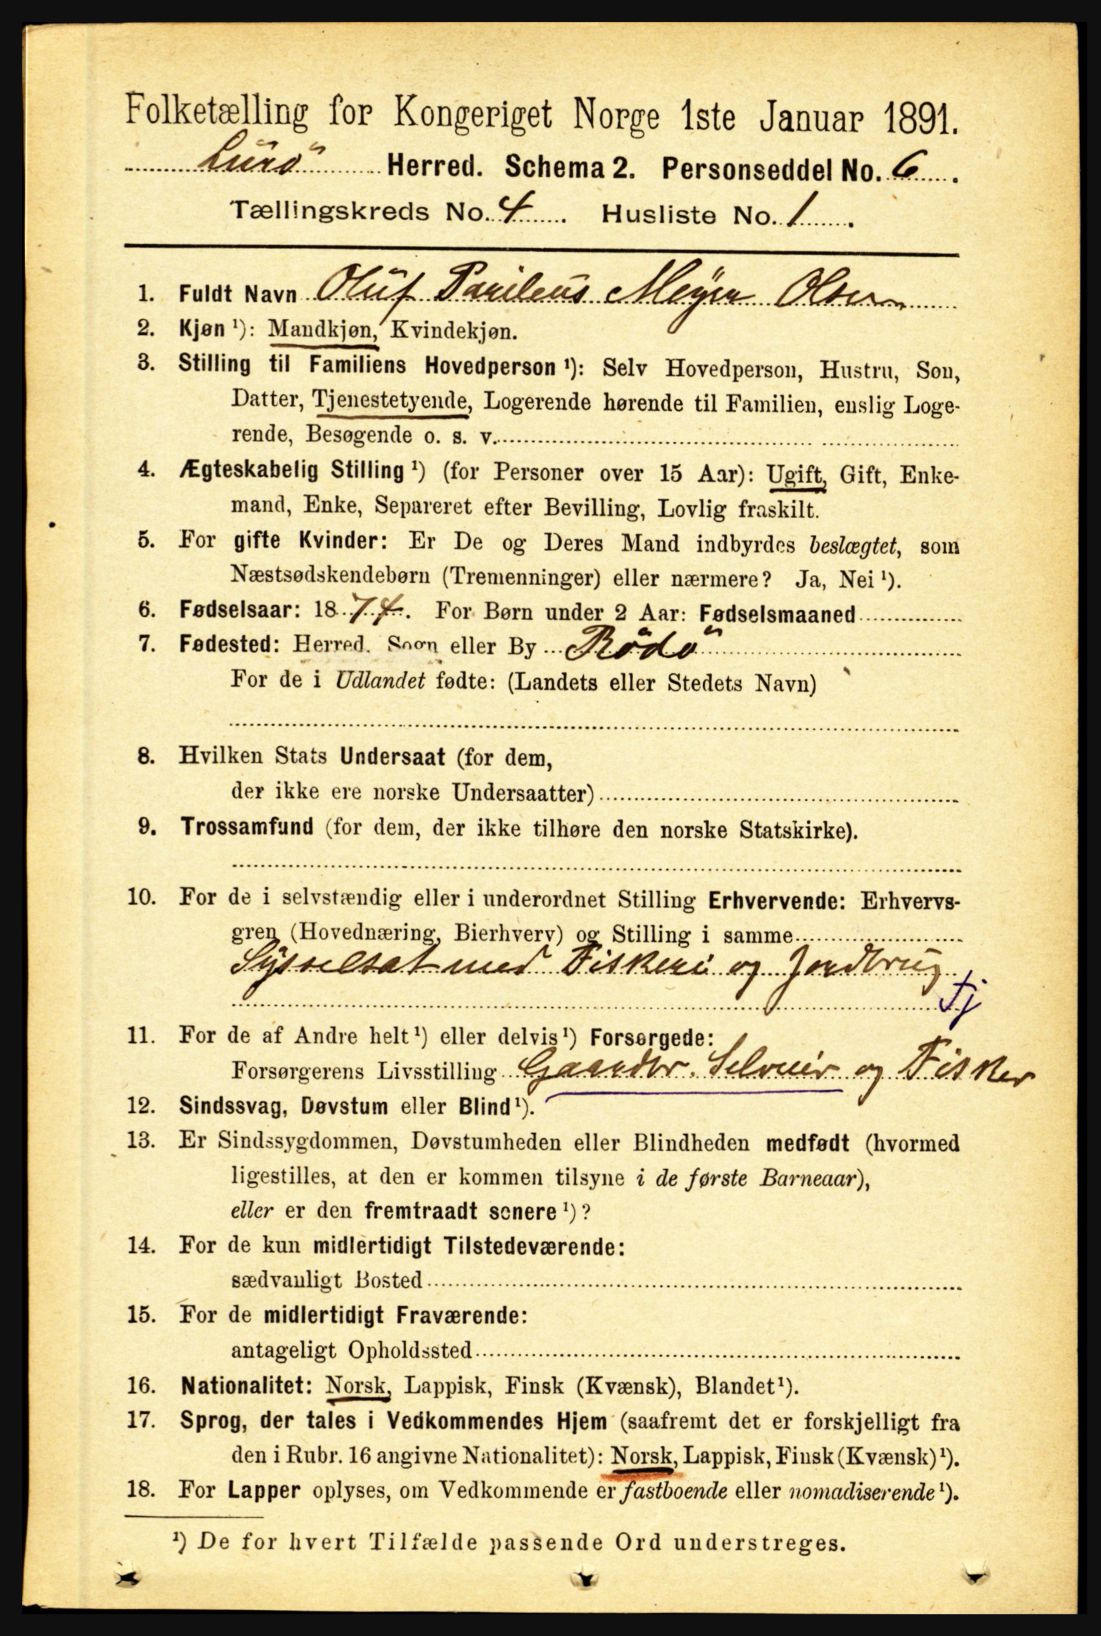 Folketælling for Kongeriget Norge 1ste Januar 1891.
Lurö Herred. Schema 2. Personseddel No. 6.
Tællingskreds No. 4. Husliste No. 1.
1. Fuldt Navn Oluf Meyer Olsen
2. Kjøn ¹): Mandkjøn, Kvindekjøn.
3. Stilling til Familiens Hovedperson ¹): Selv Hovedperson, Hustru, Søn,
Datter, Tjenestetyende, Logerende hørende til Familien, enslig Loge-
rende, Besøgende o. s. v.
4. Ægteskabelig Stilling ¹) (for Personer over 15 Aar): Ugift, Gift, Enke-
mand, Enke, Separeret efter Bevilling, Lovlig fraskilt.
5. For gifte Kvinder: Er De og Deres Mand indbyrdes beslægtet, som
Næstsødskendebørn (Tremenninger) eller nærmere? Ja, Nei ¹).
6. Fødselsaar: 1874. For Børn under 2 Aar: Fødselsmaaned
7. Fødested: Herred, Sogn eller By Rödö
For de i Udlandet fødte: (Landets eller Stedets Navn)
8. Hvilken Stats Undersaat (for dem,
der ikke ere norske Undersaatter)
9. Trossamfund (for dem, der ikke tilhøre den norske Statskirke).
10. For de i selvstændig eller i underordnet Stilling Erhvervende: Erhvervs-
gren (Hovednæring, Bierhverv) og Stilling i samme
Sysselsat med Fiskeri og Jordbrug
Tj
11. For de af Andre helt ¹) eller delvis ¹) Forsørgede:
Forsørgerens Livsstilling Gaardbr. Selveier og Fisker
12. Sindssvag, Døvstum eller Blind ¹).
13. Er Sindssygdommen, Døvstumheden eller Blindheden medfødt (hvormed
ligestilles, at den er kommen tilsyne i de første Barneaar),
eller er den fremtraadt senere ¹)?
14. For de kun midlertidigt Tilstedeværende:
sædvanligt Bosted
15. For de midlertidigt Fraværende:
antageligt Opholdssted
16. Nationalitet: Norsk, Lappisk, Finsk (Kvænsk), Blandet ¹).
17. Sprog, der tales i Vedkommendes Hjem (saafremt det er forskjelligt fra
den i Rubr. 16 angivne Nationalitet): Norsk, Lappisk, Finsk (Kvænsk) ¹).
18. For Lapper oplyses, om Vedkommende er fastboende eller nomadiserende ¹).
¹) De for hvert Tilfælde passende Ord understreges.